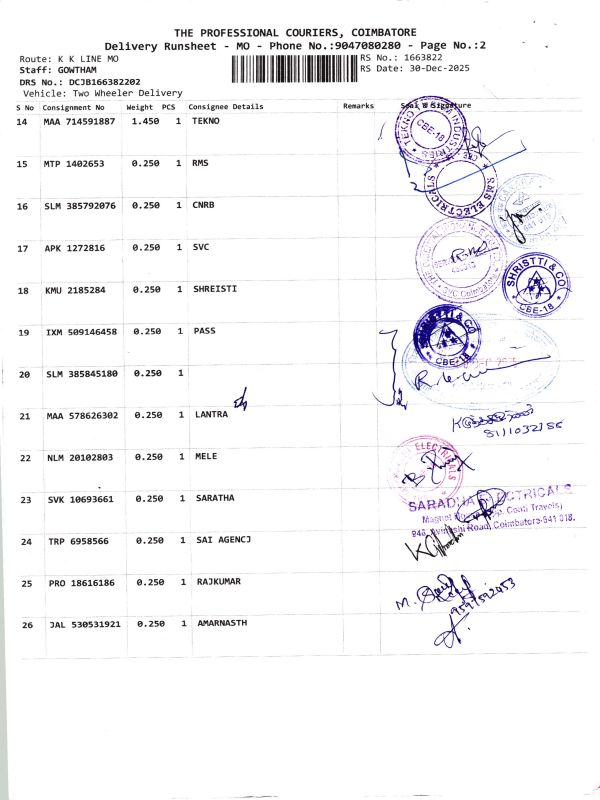 THE PROFESSIONAL COURIERS, COIMBATORE
Delivery Runsheet - MO - Phone No.:9047080280 - Page No.:2
Route: K K LINE MO
RS No.: 1663822
Staff: GOWTHAM
RS Date: 30-Dec-2025
DRS No.: DCJB166382202
Vehicle: Two Wheeler Delivery
S No Consignment No Weight PCS Consignee Details Remarks Seal & Signature
14 MAA 714591887 1.450 1 TEKNO
TEKNO INDUSTRIES CBE-18
15 MTP 1402653 0.250 1 RMS
SMS ELECTRICALS
16 SLM 385792076 0.250 1 CNRB
17 APK 1272816 0.250 1 SVC
SVC Coimbatore
18 KMU 2185284 0.250 1 SHREISTI
SHRISTTI & CO CBE-18
19 IXM 509146458 0.250 1 PASS
SHRISTTI & CO CBE-18
20 SLM 385845180 0.250 1
21 MAA 578626302 0.250 1 LANTRA
22 NLM 20102803 0.250 1 MELE
ELECTRICALS
23 SVK 10693661 0.250 1 SARATHA
SARADHA ELECTRICALS
Coimbatore-641 018.
24 TRP 6958566 0.250 1 SAI AGENCJ
25 PRO 18616186 0.250 1 RAJKUMAR
26 JAL 530531921 0.250 1 AMARNASTH